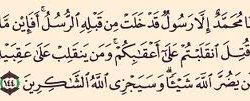 مُحَمَّدٌ إِلَّا رَسُولٌ قَدْ خَلَتْ مِن قَبْلِهِ ٱلرُّسُلُ ۚ أَفَإِي۟ن مَّا
قُتِلَ ٱنقَلَبْتُمْ عَلَىٰٓ أَعْقَـٰبِكُمْ ۚ وَمَن يَنقَلِبْ عَلَىٰ عَقِبَيْهِ
ن يَضُرَّ ٱللَّهَ شَيْـًٔا ۗ وَسَيَجْزِى ٱللَّهُ ٱلشَّـٰكِرِينَ ١٤٤